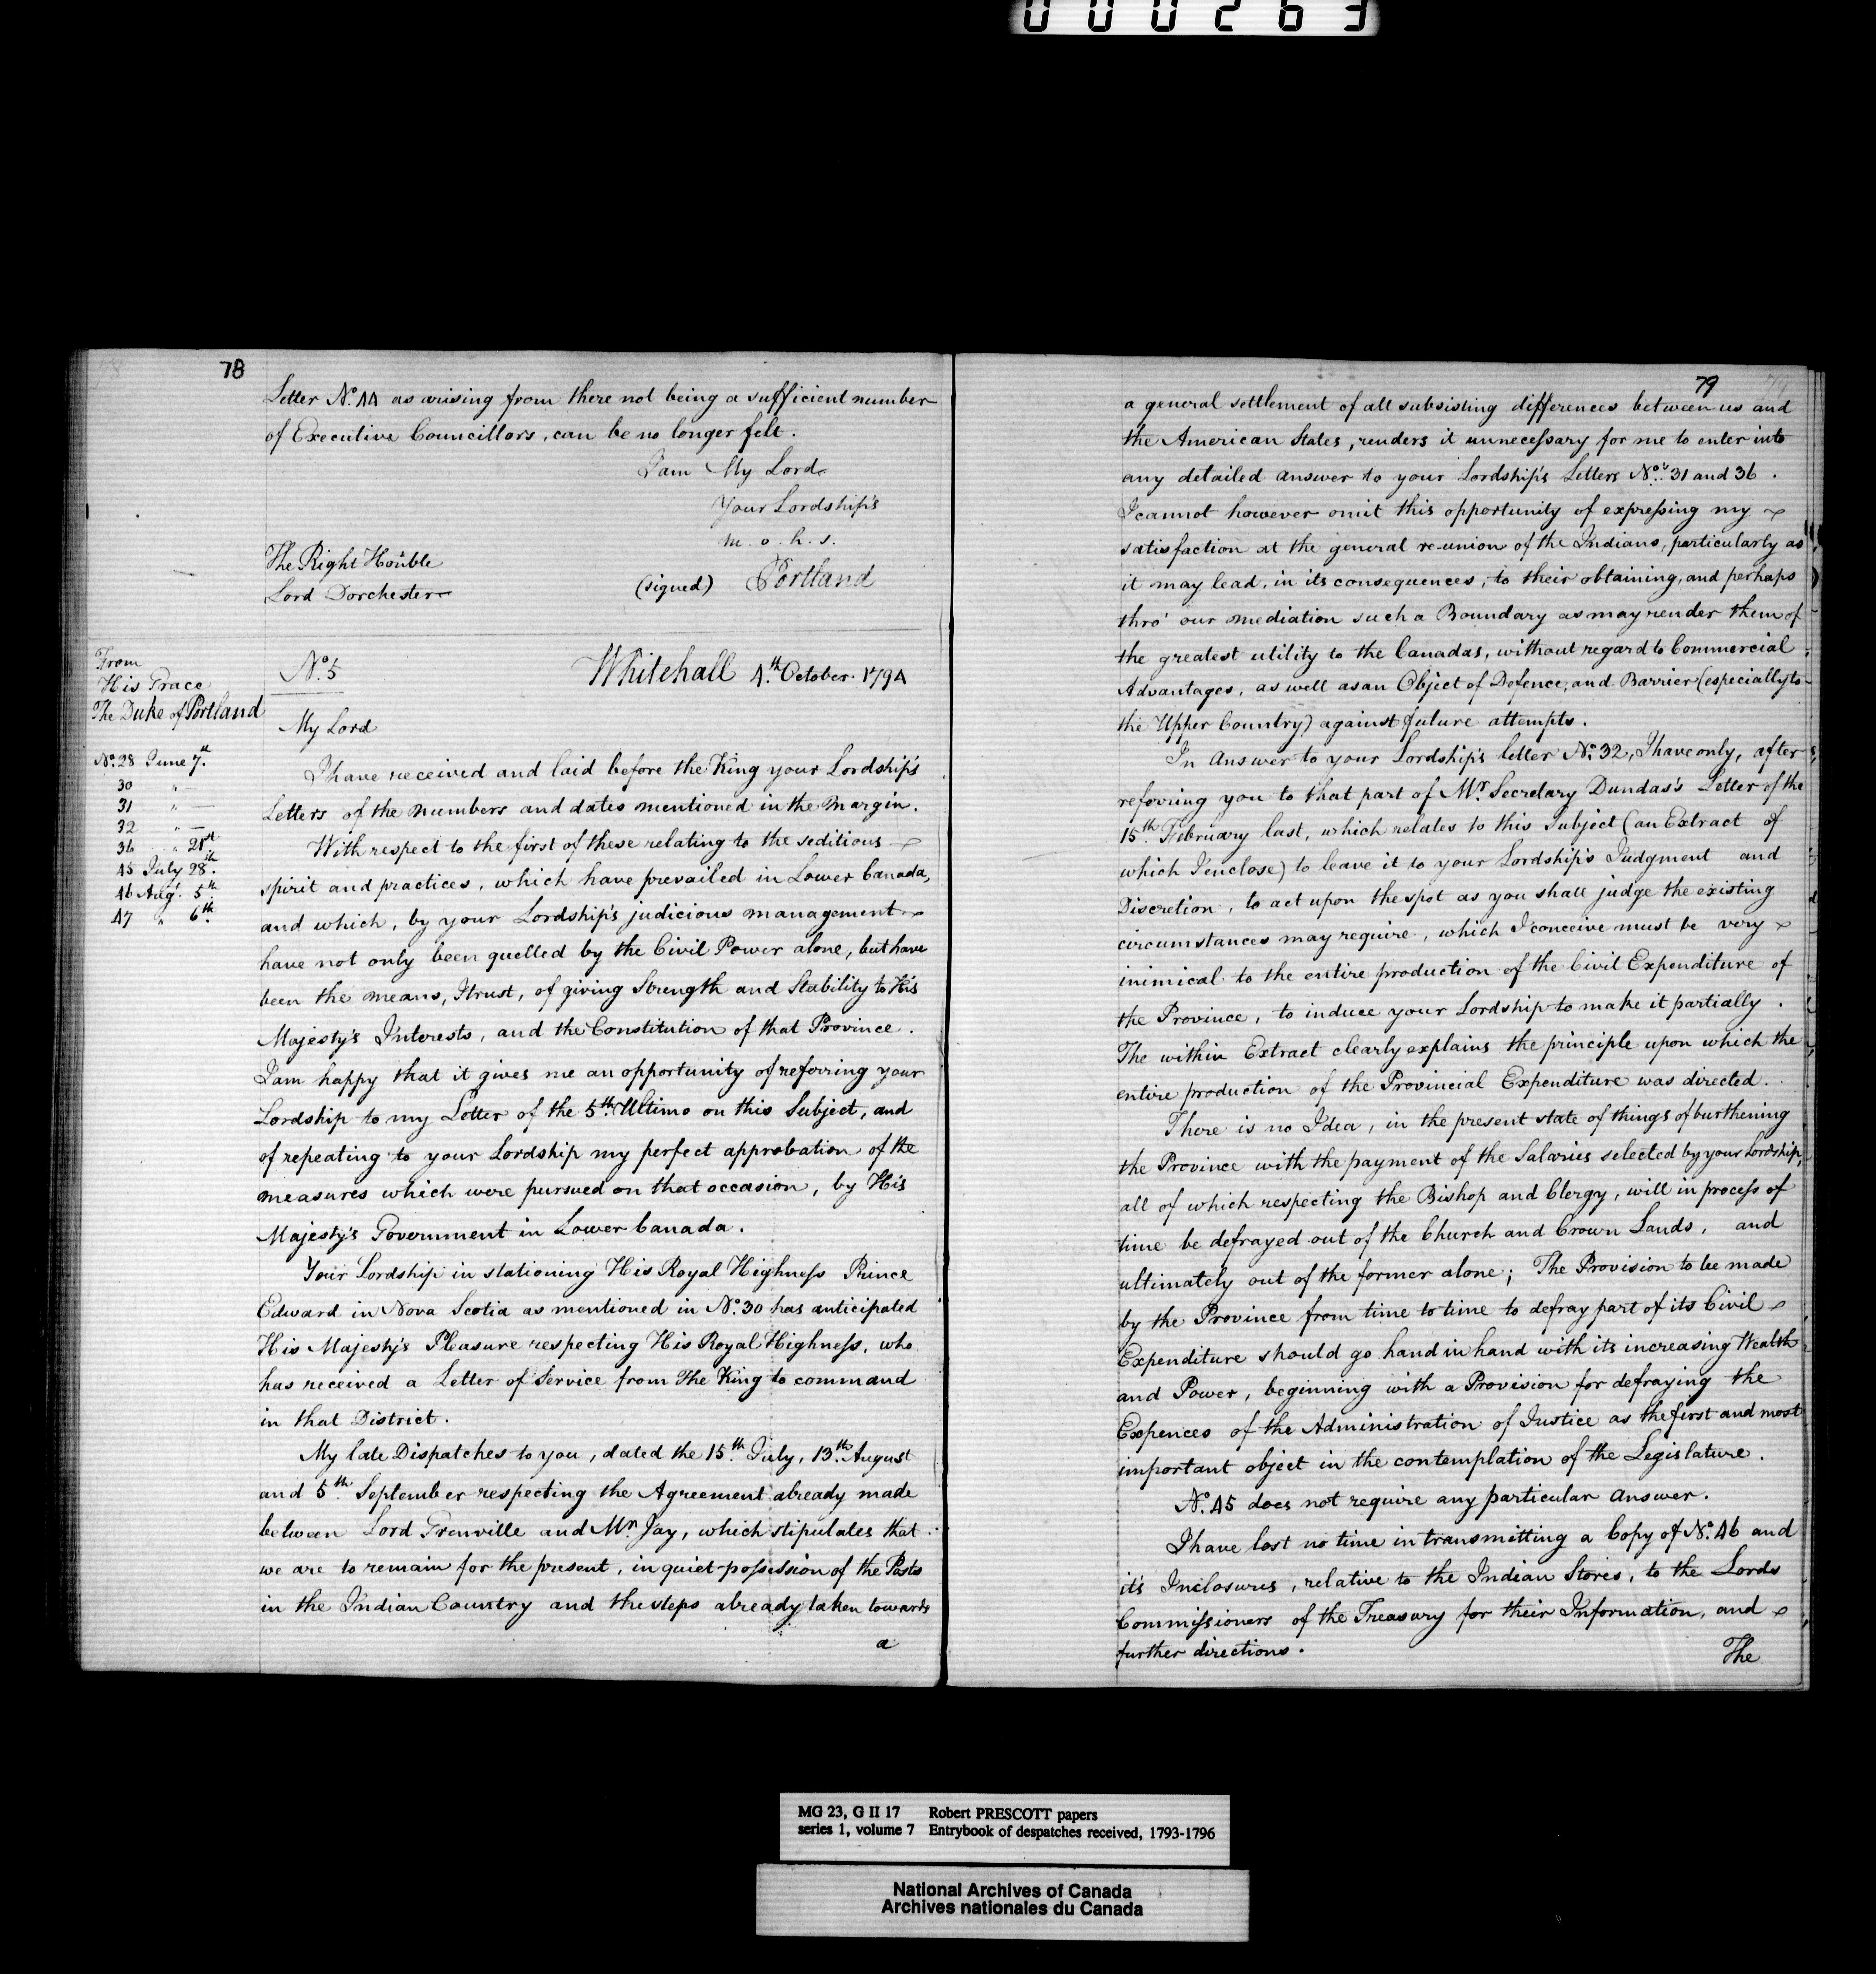 000263
78
Letter No. 44 as arising from there not being a sufficient number
of Executive Councillors, can be no longer felt.
I am My Lord
Your Lordship's
m. o. h. s.
The Right Honble
Lord Dorchester
(signed) Portland
From
His Grace
The Duke of Portland
No. 28 June 7th.
30 " —
31 " —
32 " —
36 " 21st
45 July 28th.
46 Augt. 5th.
47 " 6th.
No. 5
Whitehall 4th. October. 1794
My Lord
I have received and laid before the King your Lordship's
Letters of the numbers and dates mentioned in the Margin.
With respect to the first of these relating to the seditious
spirit and practices, which have prevailed in Lower Canada,
and which, by your Lordship's judicious management
have not only been quelled by the Civil Power alone, but have
been the means, I trust, of giving Strength and Stability to His
Majesty's Interests, and the Constitution of that Province.
I am happy that it gives me an opportunity of referring your
Lordship to my Letter of the 5th. Ultimo on this Subject, and
of repeating to your Lordship my perfect approbation of the
measures which were pursued on that occasion, by His
Majesty's Government in Lower Canada.
Your Lordship in stationing His Royal Highness Prince
Edward in Nova Scotia as mentioned in No. 30 has anticipated
His Majesty's Pleasure respecting His Royal Highness, who
has received a Letter of Service from The King to command
in that District.
My late Dispatches to you, dated the 15th. July, 13th. August
and 5th. September respecting the Agreement already made
between Lord Grenville and Mr. Jay, which stipulates that
we are to remain for the present, in quiet possession of the Posts
in the Indian Country and the steps already taken towards
a
79
a general settlement of all subsisting differences between us and
the American States, renders it unnecessary for me to enter into
any detailed answer to your Lordship's Letters Nos. 31 and 36.
I cannot however omit this opportunity of expressing my
satisfaction at the general re-union of the Indians, particularly as
it may lead, in its consequences, to their obtaining, and perhaps
thro' our mediation such a Boundary as may render them of
the greatest utility to the Canadas, without regard to Commercial
Advantages, as well as an Object of Defence, and Barrier (especially to
the Upper Country) against future attempts.
In answer to your Lordship's letter No. 32, I have only, after
referring you to that part of Mr. Secretary Dundas's Letter of the
15th. February last, which relates to this Subject (an Extract of
which I enclose) to leave it to your Lordship's Judgment and
Discretion, to act upon the spot as you shall judge the existing
circumstances may require, which I conceive must be very
inimical to the entire production of the Civil Expenditure of
the Province, to induce your Lordship to make it partially.
The within Extract clearly explains the principle upon which the
entire production of the Provincial Expenditure was directed.
There is no Idea, in the present state of things of burthening
the Province with the payment of the Salaries selected by your Lordship,
all of which respecting the Bishop and Clergy, will in process of
time be defrayed out of the Church and Crown Lands, and
ultimately out of the former alone; The Provision to be made
by the Province from time to time to defray part of its Civil
Expenditure should go hand in hand with its increasing Wealth
and Power, beginning with a Provision for defraying the
Expences of the Administration of Justice as the first and most
important object in the contemplation of the Legislature.
No. 45 does not require any particular answer.
I have lost no time in transmitting a Copy of No. 46 and
it's Inclosures, relative to the Indian Stores, to the Lords
Commissioners of the Treasury for their Information, and
further directions.
The
MG 23, G II 17 Robert PRESCOTT papers
series 1, volume 7 Entrybook of despatches received, 1793-1796
National Archives of Canada
Archives nationales du Canada